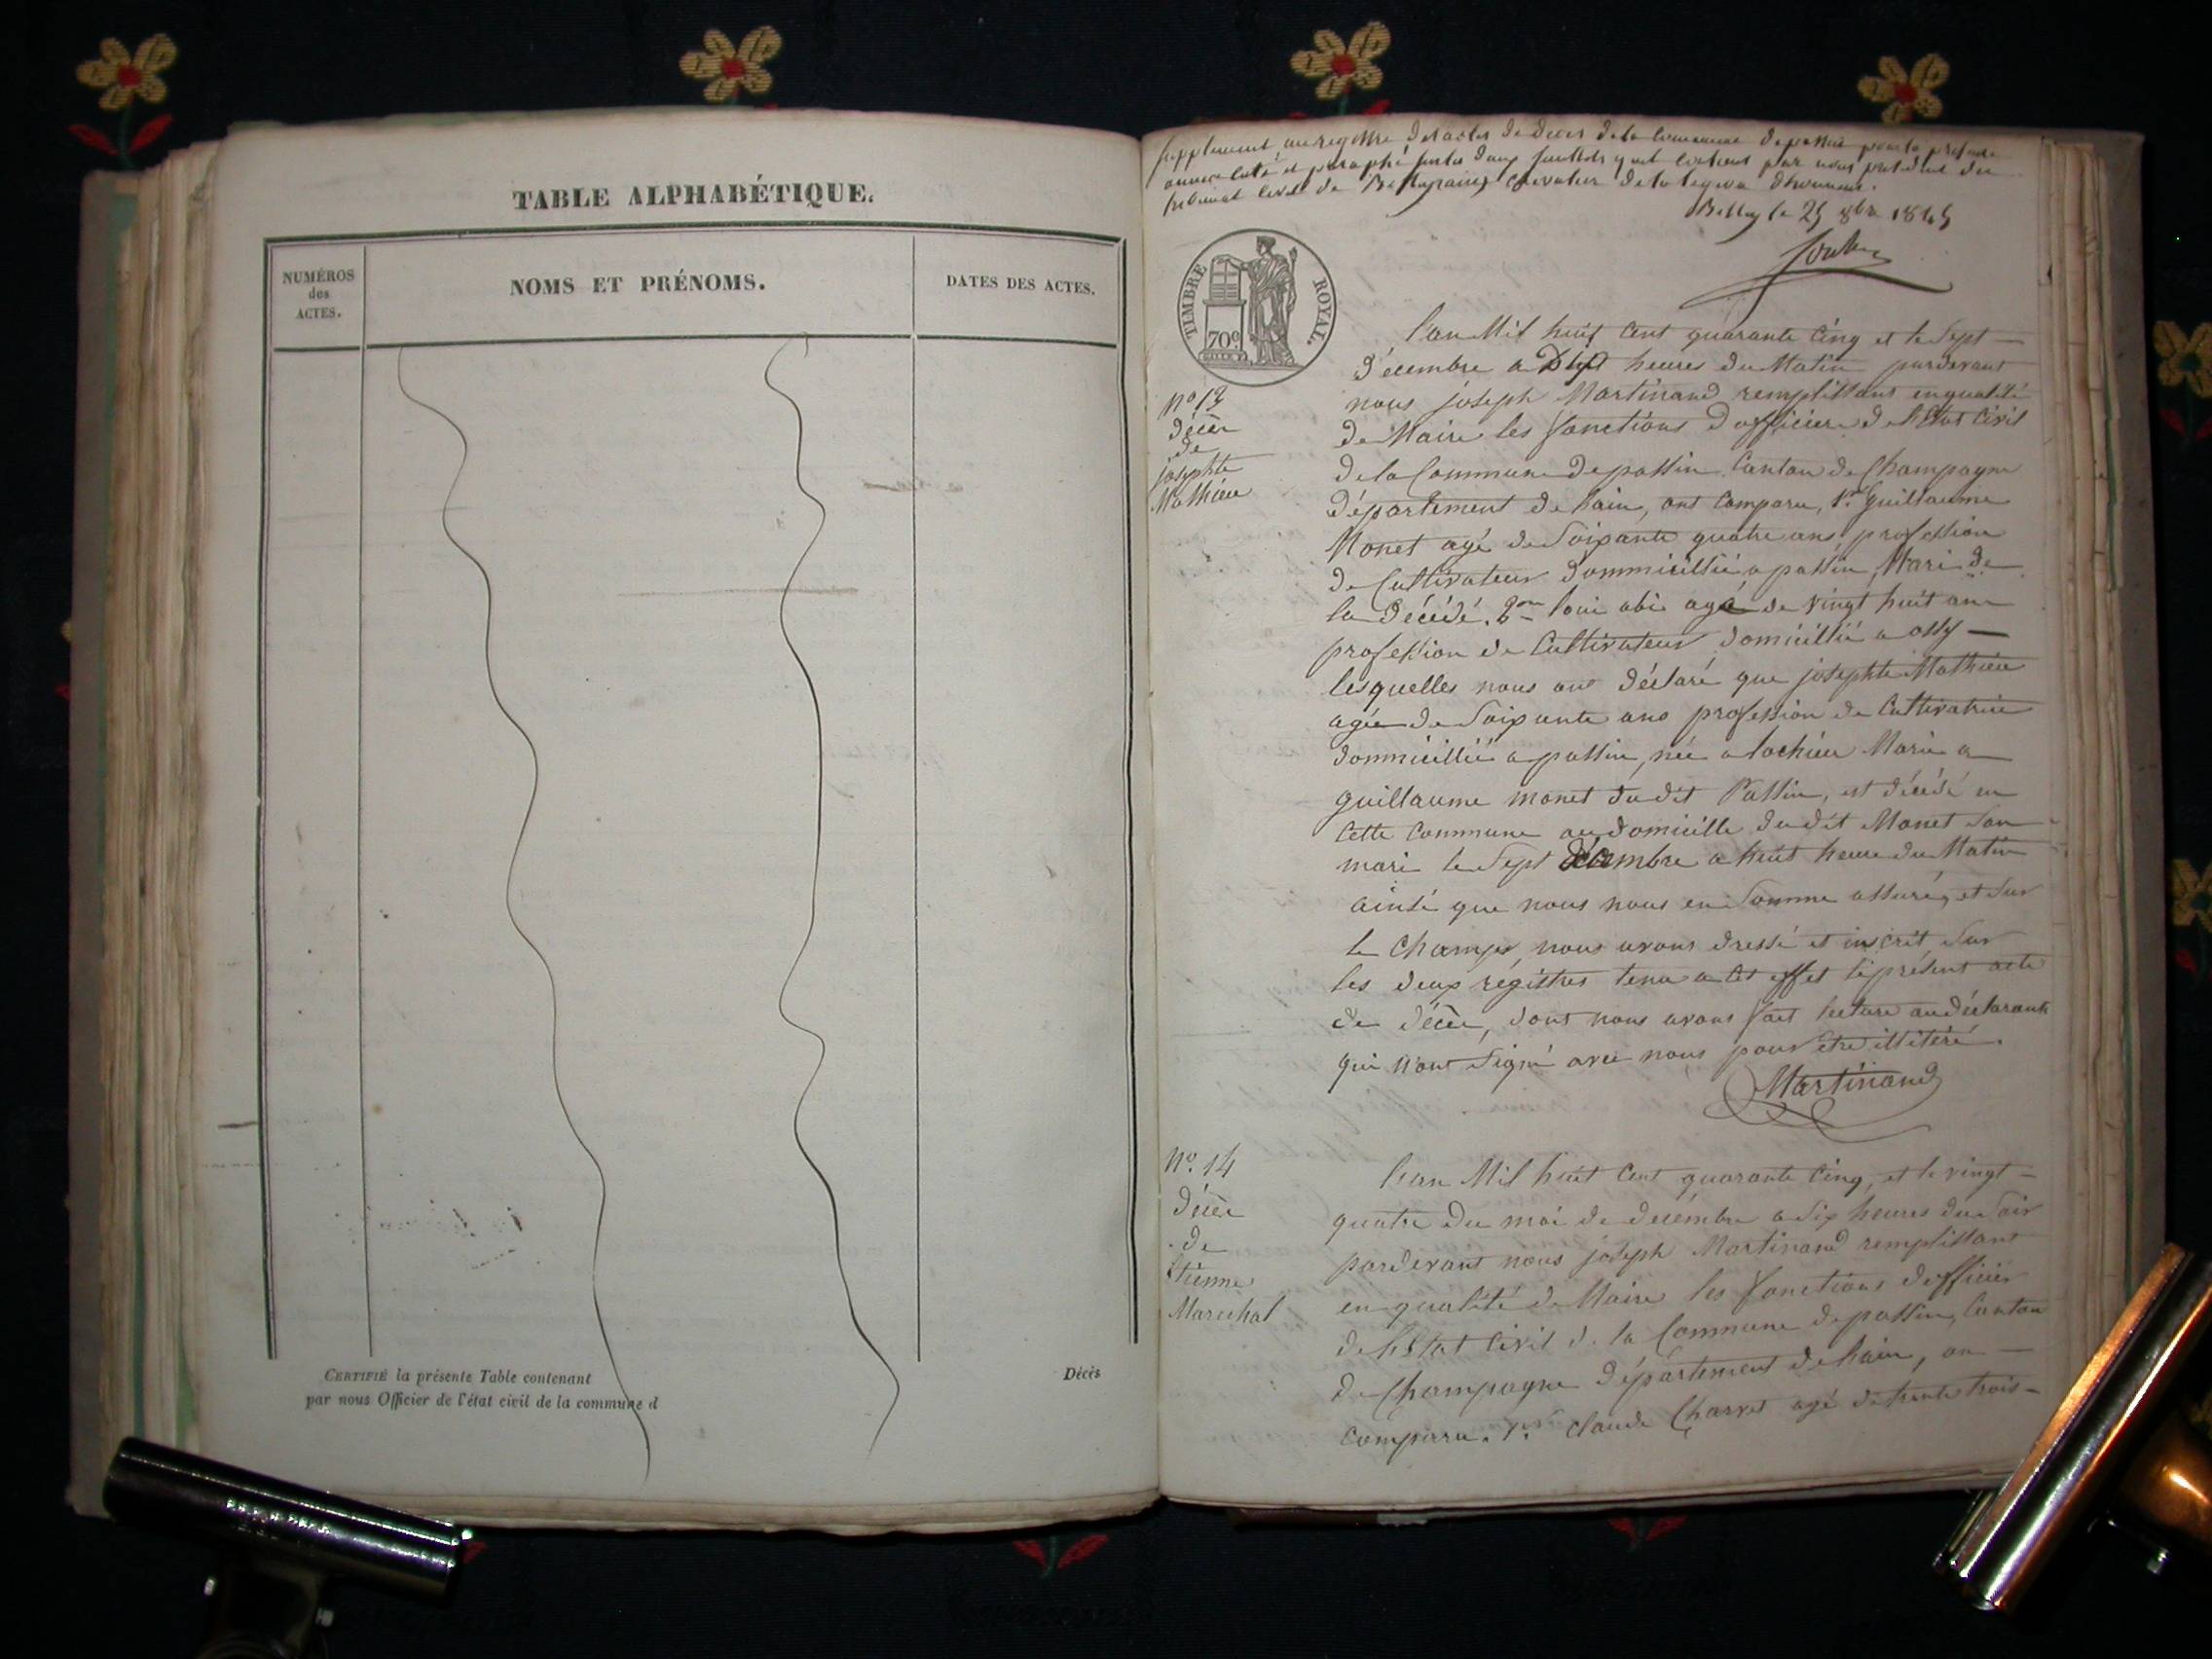 TABLE ALPHABÉTIQUE.
NUMÉROS
des
ACTES.
NOMS ET PRÉNOMS.
DATES DES ACTES.
CERTIFIÉ la présente Table contenant
Décès
par nous Officier de l'état civil de la commune d
supplement au registre des actes de deces de la commune de passin pour la presente
annee coté et paraphé par nous president du
tribunal civil de Belley chevalier de la legion dhonneur.
Belley le 25 8bre 1845
TIMBRE ROYAL.
70c
No 13
décèe
de
josephte
Mathieu
l'an Mil huit Cent quarante Cinq et le Sept
décembre a heures du Matin pardevant
nous joseph Martinand remplissant enqualité
de Maire les fonctions d'officiere de l'Etat Civil
de la Commune de passin Canton de Champagne
département de lain, ont Comparu, 1er Guillaume
Monet agé de Soixante quatre ans, profession
de Cultivateur dommicillié a passin, Mari de
la décédé. 2me loui abi agé de vingt huit an
profession de Cultivateur domicillié a ossy
lesquelles nous ont déclaré que josephte Mathieu
agée de Soixante ans profession de Cultivatrice
dommicillié a passin, née a lochieu Marié a
guillaume monet du dit Passin, est décédé en
Cette Commune au domicille du dit Monet Son
mari le Sept décembre a huit heure du Matin
ainsi que nous nous en Somme assuré, et Sur
le Champs, nous avons dressé et inscrit Sur
les deux régistres tenu a Cet effet le présent acte
de décèe, dont nous avons fait lecture au déclarants
qui n'ont Signé avec nous pour etre illitéré.
Martinand
No. 14
décèe
de
Etienne
Marechal
l'an Mil huit Cent quarante Cinq, et le vingt
quatre du moi de decémbre a Six heures du Soir
pardevant nous joseph Martinand remplissant
en qualité de Maire les fonctions d'officier
de l'Etat Civil de la Commune de passin, Canton
de Champagne département de lain, on
Comparu. 1er. Claude Charvet agé de trente trois